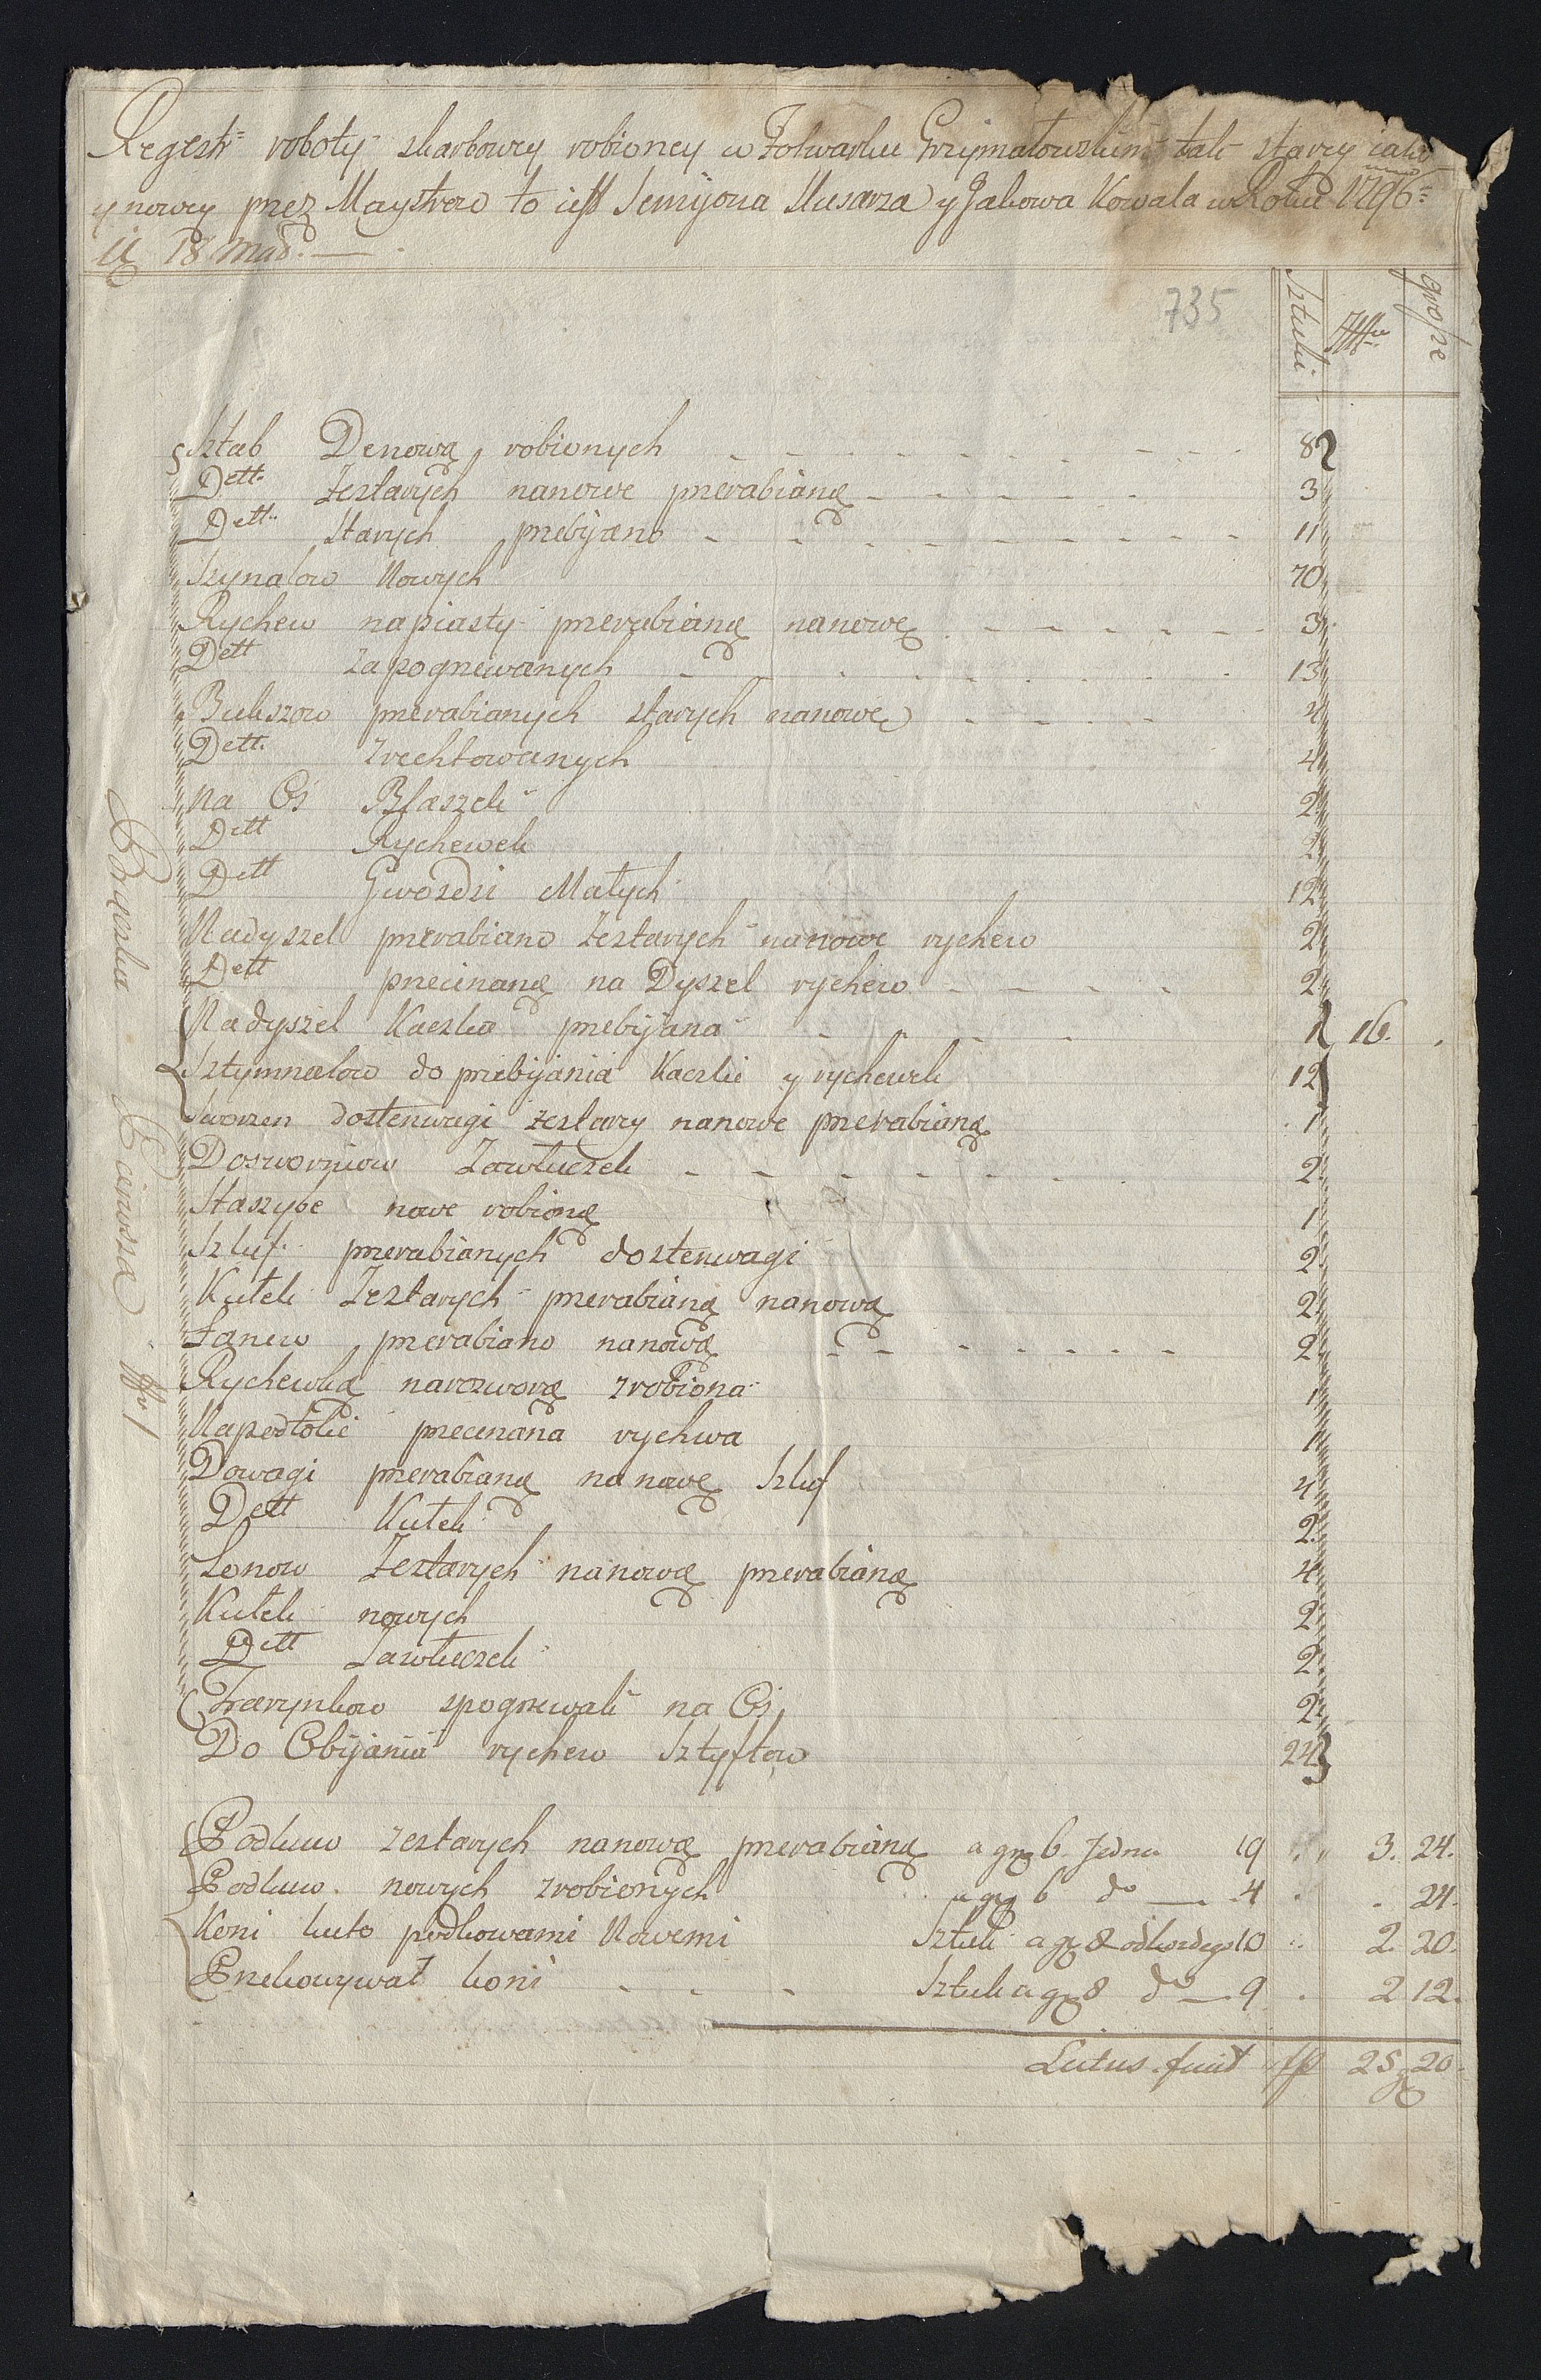 Regestr roboty skarbowey robioney w Folwarku Grzymałowskim tak starey iako
y nowey przez Maystrow to iest Semijona Slusarza y Jakowa Kowala w Roku 1796=
18 Mad. —
735
Sztuki
grosze
Sztab Denową robionych - - - - 8
Dett. Zestarych nanowe przerabianę - - - - 3
Dett. Starych przebijano - - - - 11
Szynalow Nowych 70
Rychew napiasty przerabianę nanowę - - - - 3
Dett zapogrzewanych - - - - 13
Bukszow przerabianych starych nanowę - - - - 4
Dett. zrechtowanych 4
na Oś Blaszek 2
Dett Rychewek 2
Dett Gwozdzi Małych 12
Nadyszel przerabiano zestarych nanowe rychew 2
Dett przecinanę na Dyszel rychew - - - - 2
Nadyszel Kaczka przebijana - - - - 1 16.
Sztymnalow do przebijania Kaczki y rychewek 12
Sworzen dosztenwagi zestary nanowe przerabianę 1
Dosworniow Zawłuczek - - - - 2
Staszybe nowe robionę 1
Szluf. przerabianych dosztenwagi 2
Kutek Zestarych przerabianę nanową 2
Łancu przerabiano nanową - - - - 2
Rychewką narozworę zrobiona 1
Napodtokie przecinana rychwa 1
Dowagi przerabianę na nowę Szluf 4
Dett Kutek 2
Lonow Zestarych nanową przerabianę 4
Kutek nowych 2
Dett Zawłuczek 2
Trarynkow spogrzewali na Oś 2
Do Obijania rychew Sztyftow 24
Podkuw zestarych nanową przerabianę a gr 6. Jedna 19 3. 24.
Podkuw. nowych zrobionych a gr 6 do — 4 . 24.
Koni kuto podkowami Nowemi Sztuk a gr 8 odkozdego 10 2. 20.
Przekowywał koni - - - Sztuk a gr 8 do — 9 2 12.
Latus. fuit fl 25 20.
Bryczka Nro 1